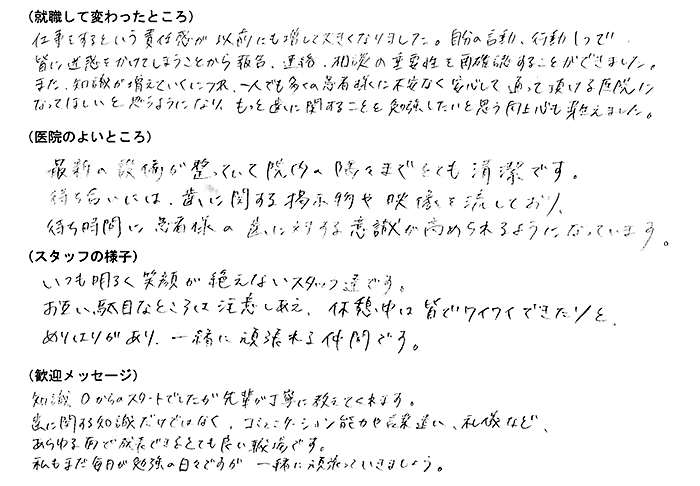 (就職して変わったところ)
仕事をするという責任感が以前にも増して大きくなりました。自分の言動、行動1つで
皆に迷惑をかけてしまうことから報告、連絡、相談の重要性を再確認することができました。
また、知識が増えていくにつれ、一人でも多くの患者様に不安なく安心して通って頂ける医院に
なってほしいと思うようになり、もっと歯に関することを勉強したいと思う向上心も芽生えました。
(医院のよいところ)
最新の設備が整っていて院内の隅々までとても清潔です。
待ち合いには、歯に関する掲示物や映像を流しており、
待ち時間に患者様の歯に対する意識が高められるようになっています。
(スタッフの様子)
いつも明るく笑顔が絶えないスタッフ達です。
お互い駄目なところは注意しあえ、休憩中は皆でワイワイできたりと、
めりはりがあり、一緒に頑張れる仲間です。
(歓迎メッセージ)
知識0からのスタートでしたが先輩が丁寧に教えてくれます。
歯に関する知識だけではなく、コミュニケーション能力や言葉遣い、礼儀など、
あらゆる面で成長できるとても良い職場です。
私もまだ毎日が勉強の日々ですが一緒に頑張っていきましょう。